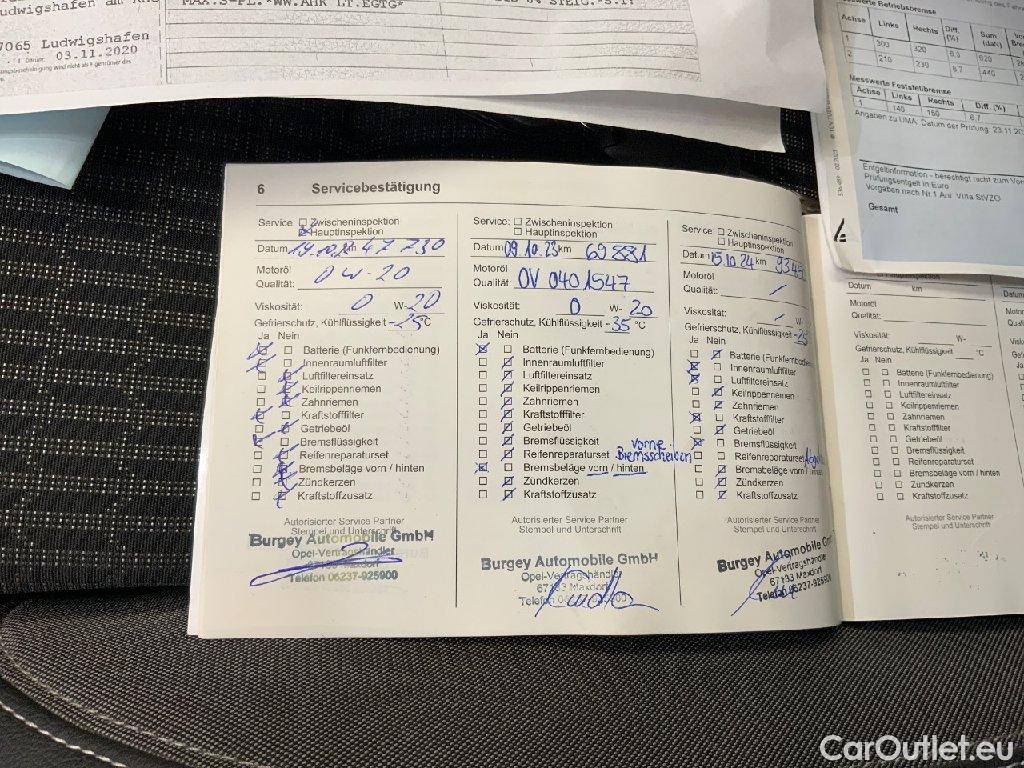 MAX.S-PL.*WW.AHK LT.EGTG*
Ludwigshafen
03.11.2020
Messwerte Betriebsbremse
Achse Links Rechts Diff. (%) Sum (daN)
1 300 320
2 210 230 8,7 440
Messwerte Feststellbremse
Achse Links Rechts Diff. (%)
1 140 150 6,7
Angaben zu UMA, Datum der Prüfung 23.11.20
Entgeltinformation - berechtigt nicht zum
Prüfungsentgelt in Euro
Gesamt
6 Servicebestätigung
Service: Zwischeninspektion
Hauptinspektion
Datum km 47 730
Motoröl
Qualität: 0W-20
Viskosität: 0 W-20
Gefrierschutz, Kühlflüssigkeit -25 °C
Ja Nein
Batterie (Funkfernbedienung)
Innenraumluftfilter
Luftfiltereinsatz
Keilrippenriemen
Zahnriemen
Kraftstofffilter
Getriebeöl
Bremsflüssigkeit
Reifenreparaturset
Bremsbeläge vorn / hinten
Zündkerzen
Kraftstoffzusatz
Autorisierter Service Partner
Stempel und Unterschrift
Burgey Automobile GmbH
Opel-Vertragshändler
67133 Maxdorf
Telefon 06237-925900
Service: Zwischeninspektion
Hauptinspektion
Datum 09.10.23 km 69 881
Motoröl
Qualität: OV 0401547
Viskosität: 0 W- 20
Gefrierschutz, Kühlflüssigkeit -35 °C
Ja Nein
Batterie (Funkfernbedienung)
Innenraumluftfilter
Luftfiltereinsatz
Keilrippenriemen
Zahnriemen
Kraftstofffilter
Getriebeöl
Bremsflüssigkeit
Reifenreparaturset
vorne Bremsscheiben
Bremsbeläge vorn / hinten
Zündkerzen
Kraftstoffzusatz
Autorisierter Service Partner
Stempel und Unterschrift
Burgey Automobile GmbH
Opel-Vertragshändler
67133 Maxdorf
Telefon
Service: Zwischeninspektion
Hauptinspektion
Datum 15.10.24 km 9345
Motoröl
Qualität: /
Viskosität: / W
Gefrierschutz, Kühlflüssigkeit -25
Ja Nein
Batterie (Funkfernbedien
Innenraumluftfilter
Luftfiltereinsatz
Keilrippenriemen
Zahnriemen
Kraftstofffilter
Getriebeöl
Bremsflüssigkeit
Reifenreparaturset
Bremsbeläge vorn /
Zündkerzen
Kraftstoffzusatz
Autorisierter Service Partner
Stempel und Unterschrift
Burgey Automobile GmbH
Opel-Vertragshändler
67133 Maxdorf
Telefon 06237-925900
Datum km
Motoröl
Qualität:
Viskosität: W-
Gefrierschutz, Kühlflüssigkeit °C
Ja Nein
Batterie (Funkfernbedienung)
Innenraumluftfilter
Luftfiltereinsatz
Keilrippenriemen
Zahnriemen
Kraftstofffilter
Getriebeöl
Bremsflüssigkeit
Reifenreparaturset
Bremsbeläge vorn / hinten
Zündkerzen
Kraftstoffzusatz
Autorisierter Service Partner
Stempel und Unterschrift
CarOutlet.eu